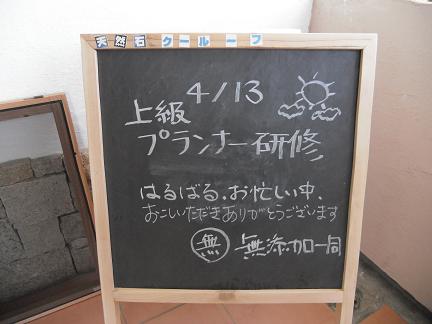 天然石クールーフ
4/13
上級
プランナー研修
はるばる、お忙しい中、
おこしいただきありがとうございます
無 無添加一同